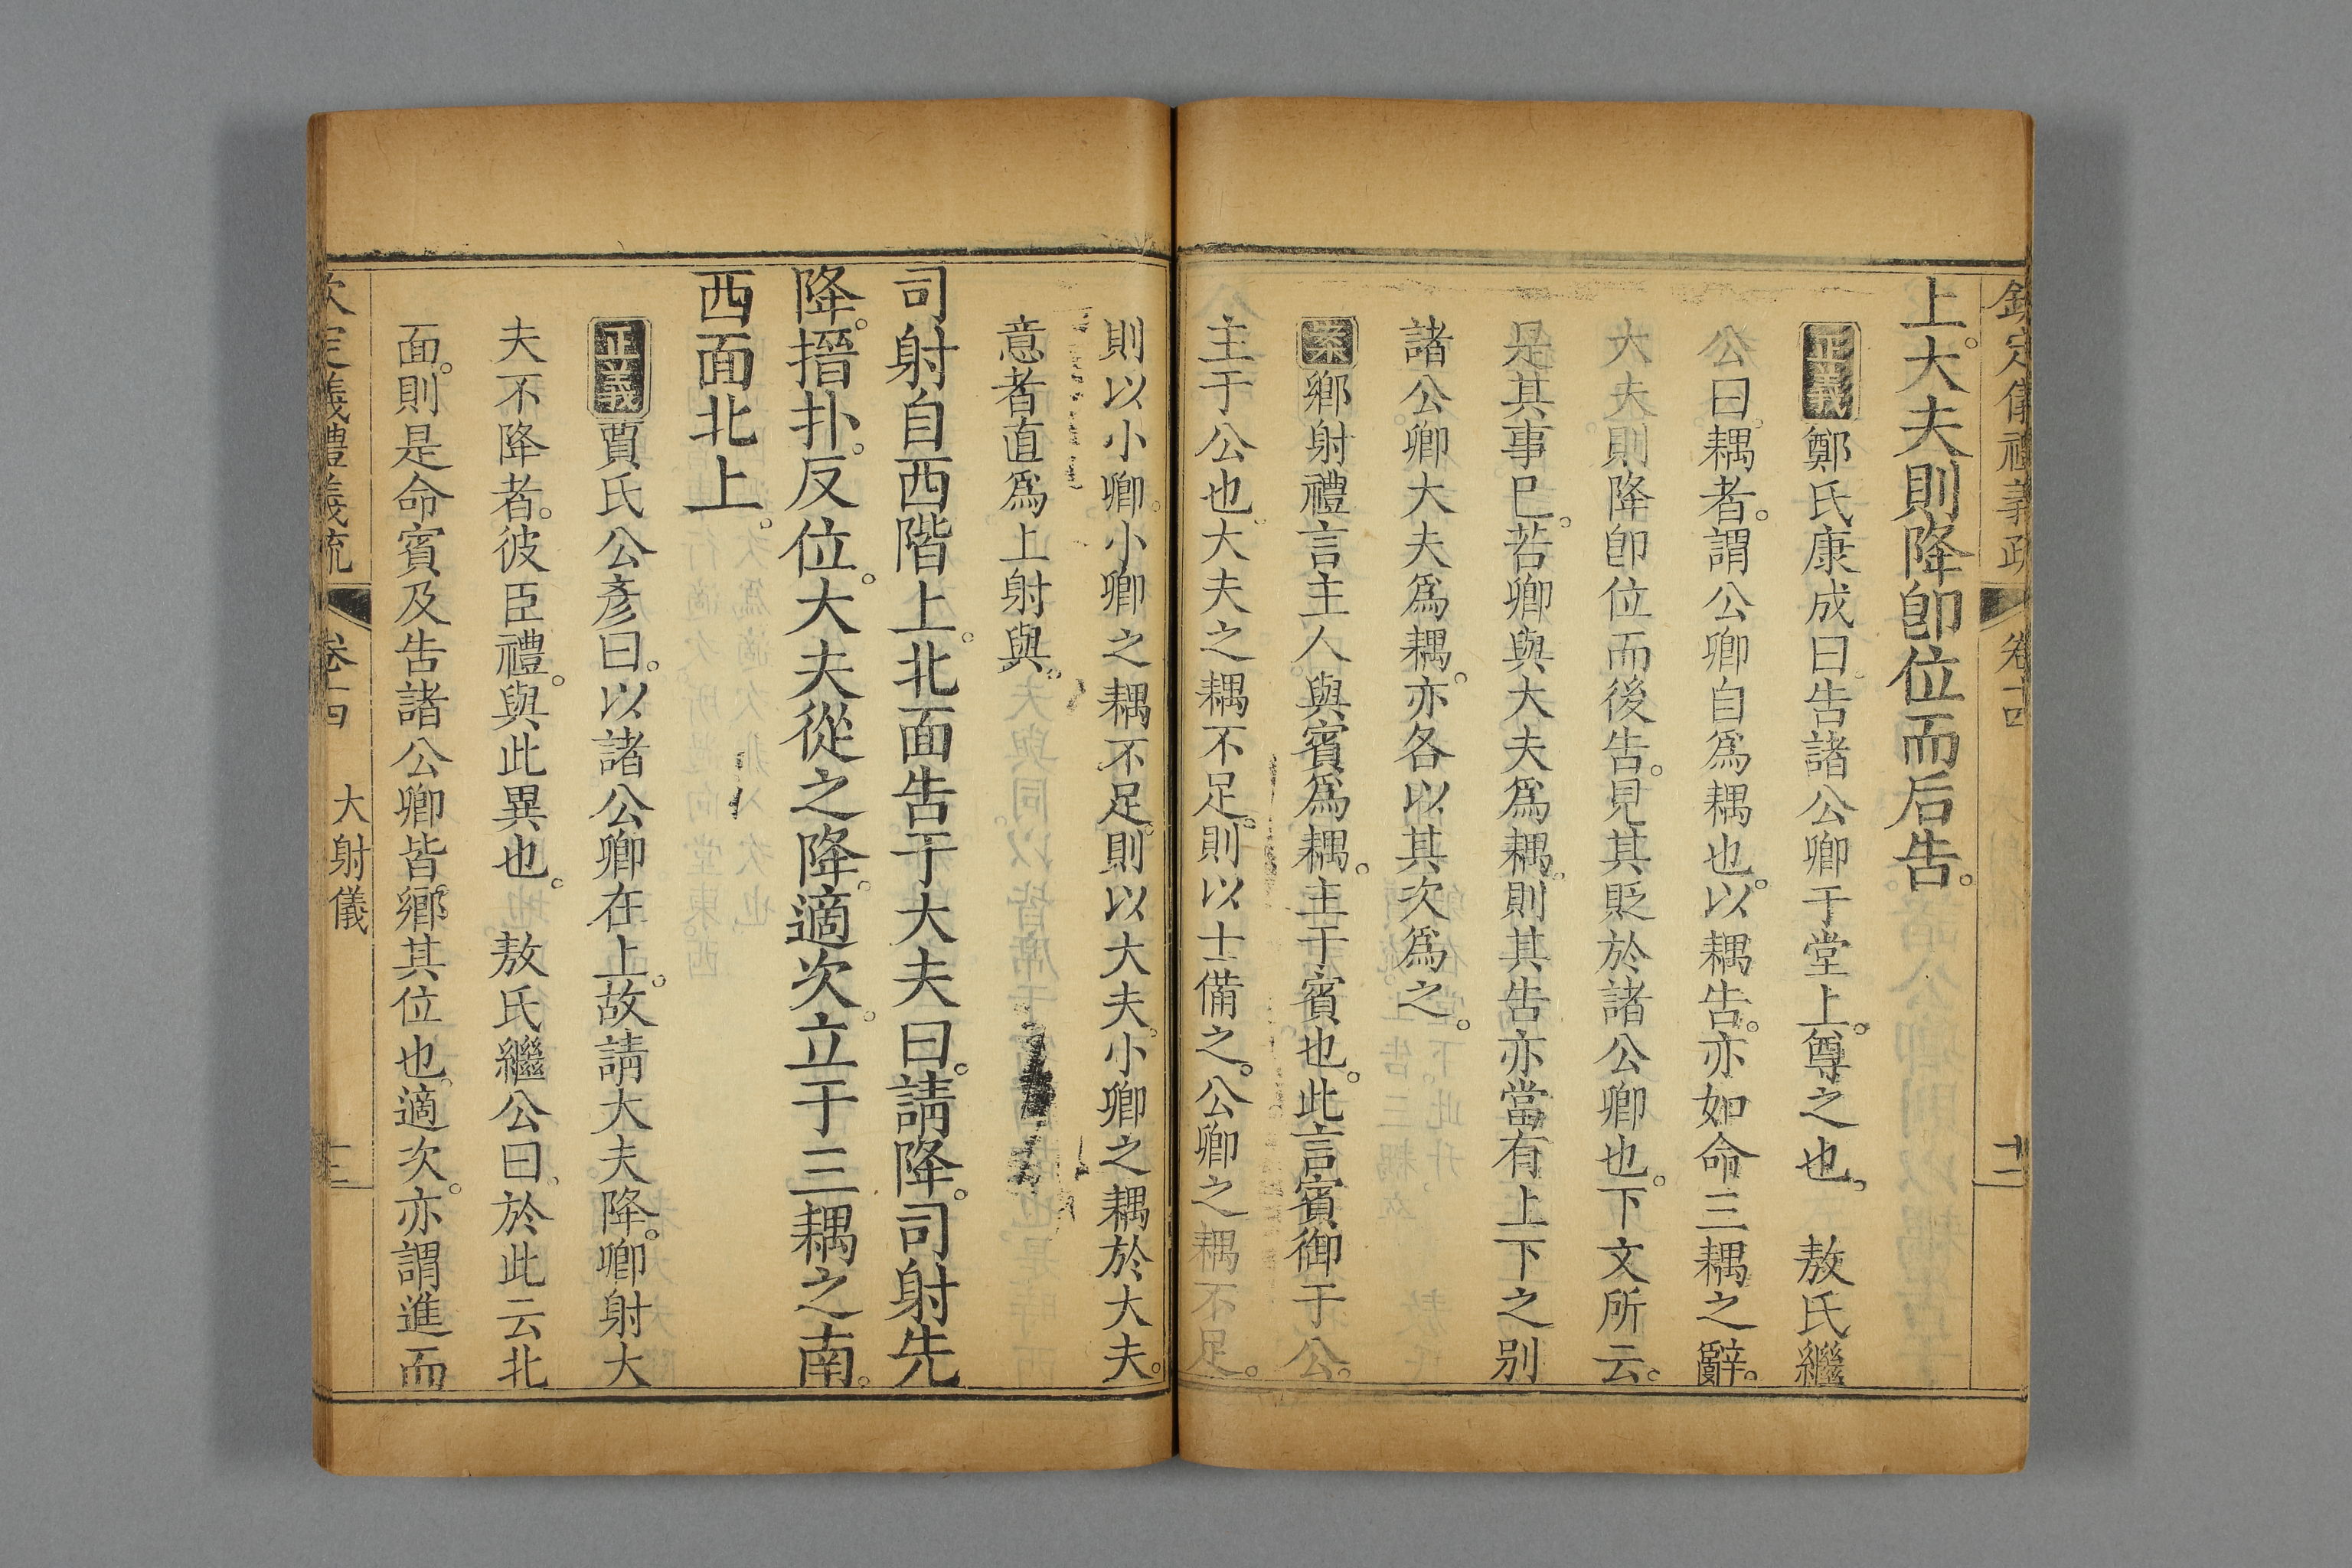 欽定儀禮義疏 卷十四 十二
上。大夫則降卽位而后告。
正義鄭氏康成曰。告諸公卿于堂上。尊之也。 敖氏繼
公曰。耦者。謂公卿自爲耦也。以耦告。亦如命三耦之辭。
大夫則降卽位而後告。見其貶於諸公卿也。下文所云。
是其事巳。若卿與大夫爲耦。則其告亦當有上下之別
諸公卿大夫爲耦。亦各以其次爲之。
案鄉射禮言主人與賓爲耦。主于賓也。此言賓御于公。
主于公也。大夫之耦不足。則以士備之。公卿之耦不足。
則以小卿。小卿之耦不足。則以大夫。小卿之耦於大夫。
意者直爲上射與。
司射自西階上。北面告于大夫曰。請降。司射先
降。搢扑。反位。大夫從之降。適次。立于三耦之南。
西面北上。
正義賈氏公彥曰。以諸公卿在上。故請大夫降。卿射大
夫不降者。彼臣禮。與此異也。 敖氏繼公曰。於此云北
面。則是命賓及告諸公卿皆鄉其位也。適次。亦謂進而
欽定儀禮義疏 卷十四 大射儀 十三